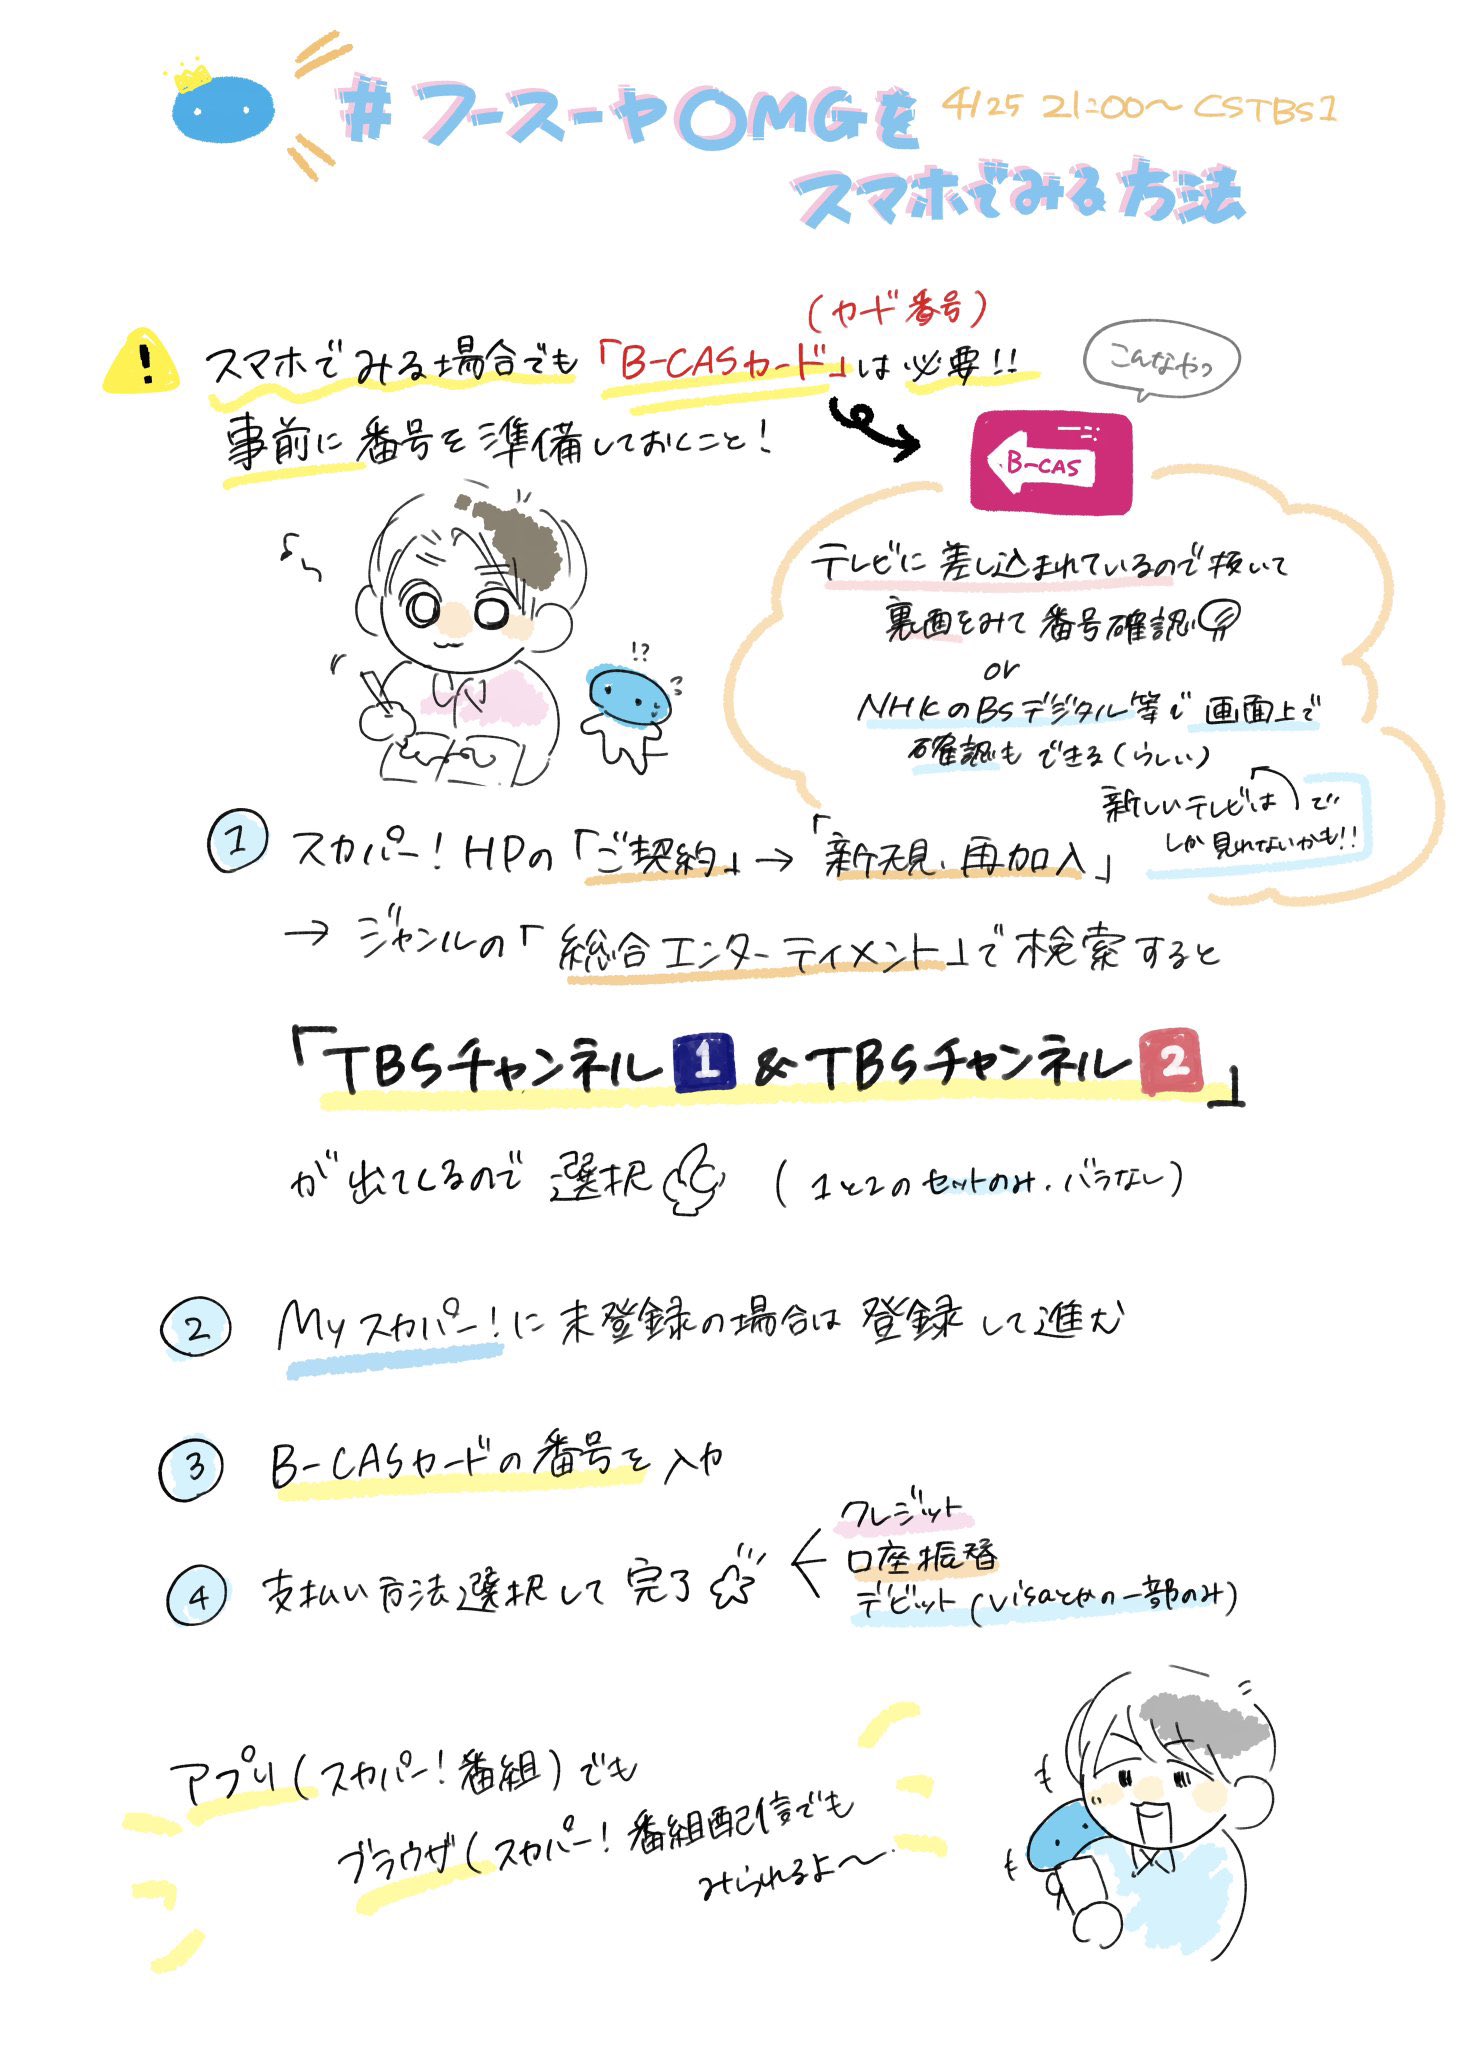 #フースーヤOMGを
4/25 21:00〜 CSTBS1
スマホでみる方法
(カード番号)
! スマホでみる場合でも「B-CASカード」は必要!!
こんなやつ
事前に番号を準備しておくこと!
B-CAS
テレビに差し込まれているので抜いて
裏面をみて番号確認
or
NHKのBSデジタル等で画面上で
確認もできる(らしい)
新しいテレビは で
しか見れないかも!!
!?
① スカパー!HPの「ご契約」→「新規、再加入」
→ ジャンルの「総合エンターティメント」で検索すると
「TBSチャンネル1&TBSチャンネル2」
が出てくるので選択 (1と2のセットのみ、バラなし)
② Myスカパー!に未登録の場合は登録して進む
③ B-CASカードの番号を入力
④ 支払い方法選択して完了
クレジット
口座振替
デビット(visaとかの一部のみ)
アプリ(スカパー!番組)でも
ブラウザ(スカパー!番組配信でも
みられるよ〜